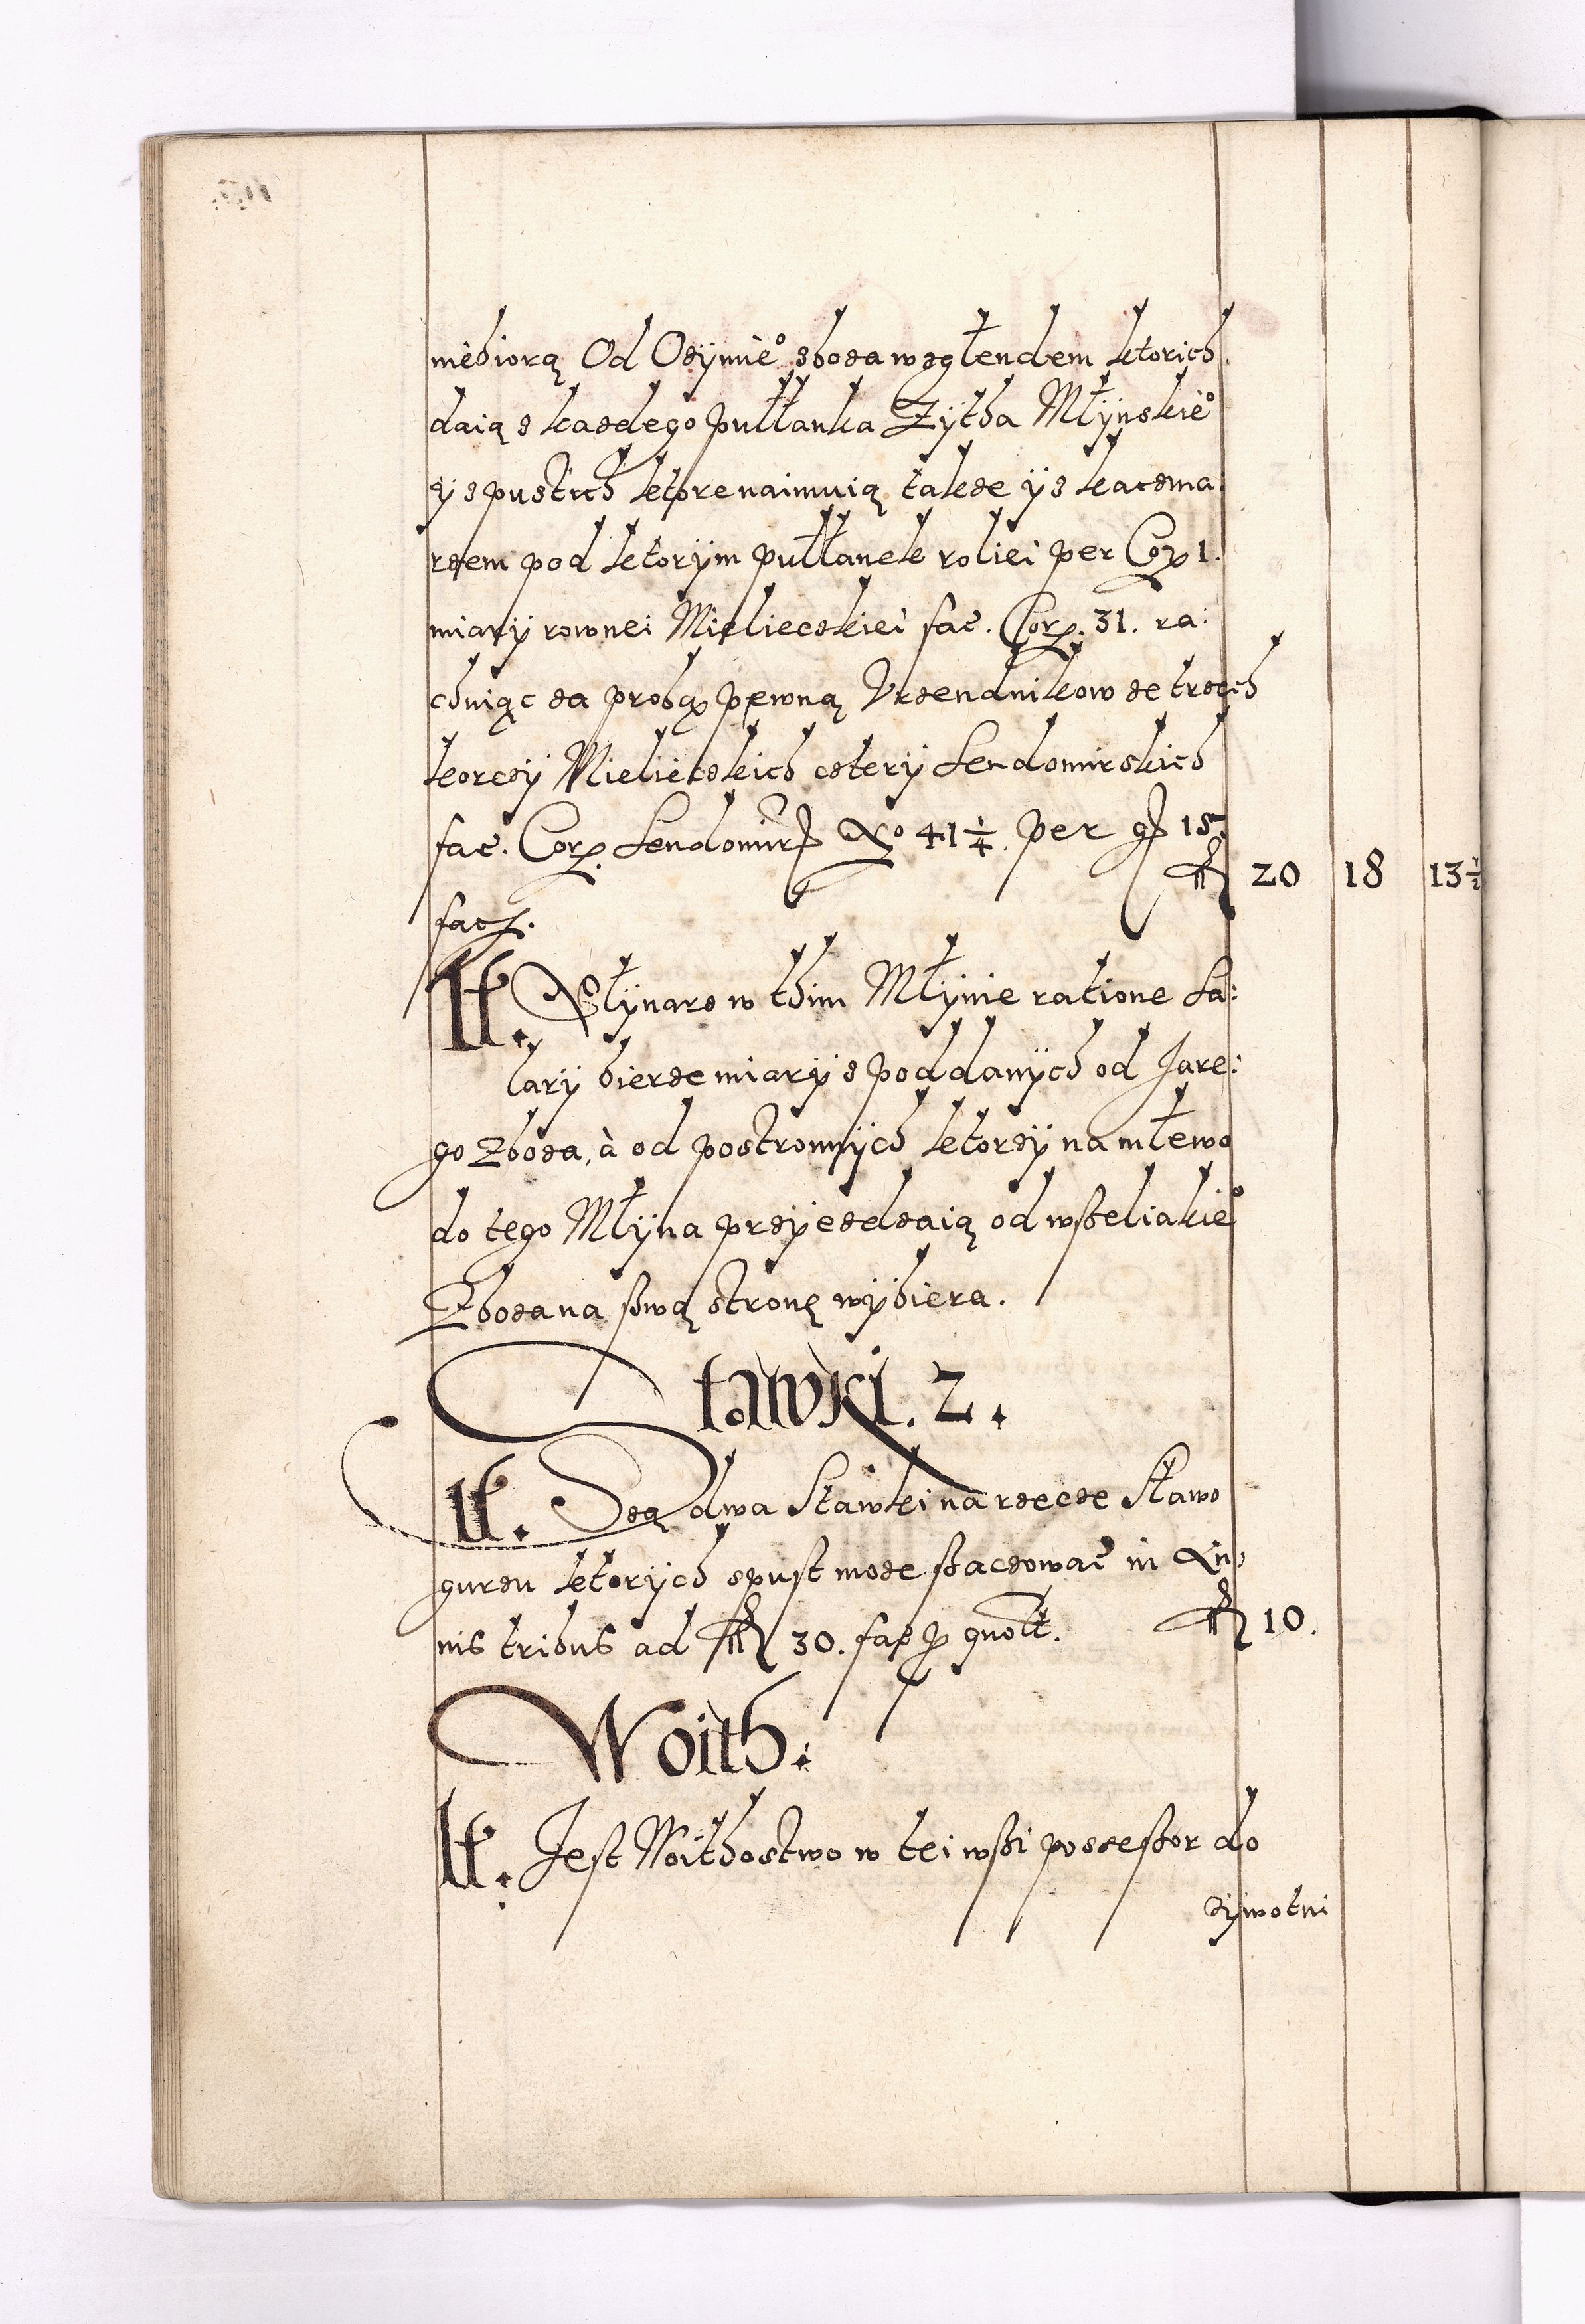 niebiorą Od Ozÿmie° zboza wzglendem ktorich
daią z kazdego pułłanka Zÿtha Młÿnskie°
ÿ z pustich ktore naimuią takze ÿ z kaczma:
rzem pod ktorÿm pułłanek roliei per Cor 1.
miarÿ rownei Mieliecskiei fac. Cor. 31. ra:
chuiąc za prosbą pewną Vrzendnikow ze trzech
korczÿ Mieliecskich czterÿ Sendomirskich
fac. Cor. Sendomir No 41¼. per gr 15
facit. fl 20 18 13½
It. Młÿnarz w thim Młÿnie ratione Sa:
larÿ bierze miarÿ z poddanÿch od Jare:
go Zboza, à od postronnÿch ktorzÿ na mlewo
do tego Młÿna przÿezdzaią od wszeliakie°
Zboza na swą stronę wÿbiera.
Stawki. 2.
It. Są dwa Stawki na rzecze Stawo
gurzu ktorÿch spust moze szaczować in An:
nis tribus ad fl 30. fac p quolt. fl 10.
Woith.
It. Jest Woithostwo w tei wsi possessor do
zÿwotni